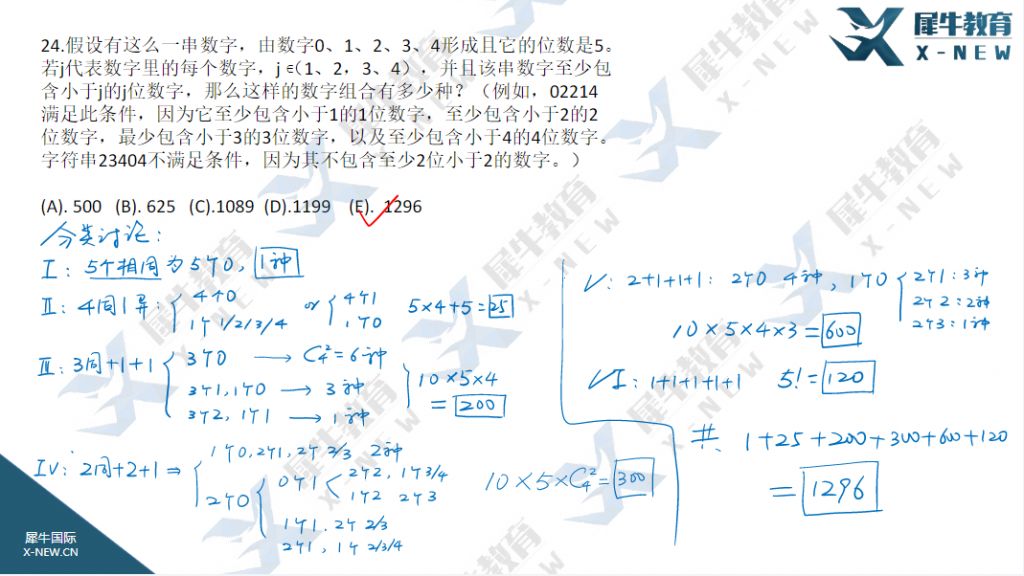 犀牛教育
X-NEW
24.假设有这么一串数字，由数字0、1、2、3、4形成且它的位数是5。
若j代表数字里的每个数字，j ∈(1、2，3、4），并且该串数字至少包
含小于j的j位数字，那么这样的数字组合有多少种？（例如，02214
满足此条件，因为它至少包含小于1的1位数字，至少包含小于2的2
位数字，最少包含小于3的3位数字，以及至少包含小于4的4位数字。
字符串23404不满足条件，因为其不包含至少2位小于2的数字。）
(A). 500 (B). 625 (C).1089 (D).1199 (E). 1296
分类讨论：
I：5个相同为5个0，1种
II：4同1异：4个0 or 4个1 5×4+5=25
1个1/2/3/4 1个0
III：3同+1+1 3个0 → C₄²=6种
3个1,1个0 → 3种 10×5×4
3个2, 1个1 → 1种 =200
IV：2同+2+1 ⇒ 1个0,2个1,2个2/3 2种
2个0 0个1 2个2, 1个3/4
1个2 2个3
10×5×C₄²=300
1个1. 2个2/3
2个1, 1个2/3/4
V：2+1+1+1：2个0 4种，1个0 2个1：3种
2个2：2种
2个3：1种
10×5×4×3=600
VI：1+1+1+1+1 5!=120
共 1+25+200+300+600+120
=1296
犀牛国际
X-NEW.CN